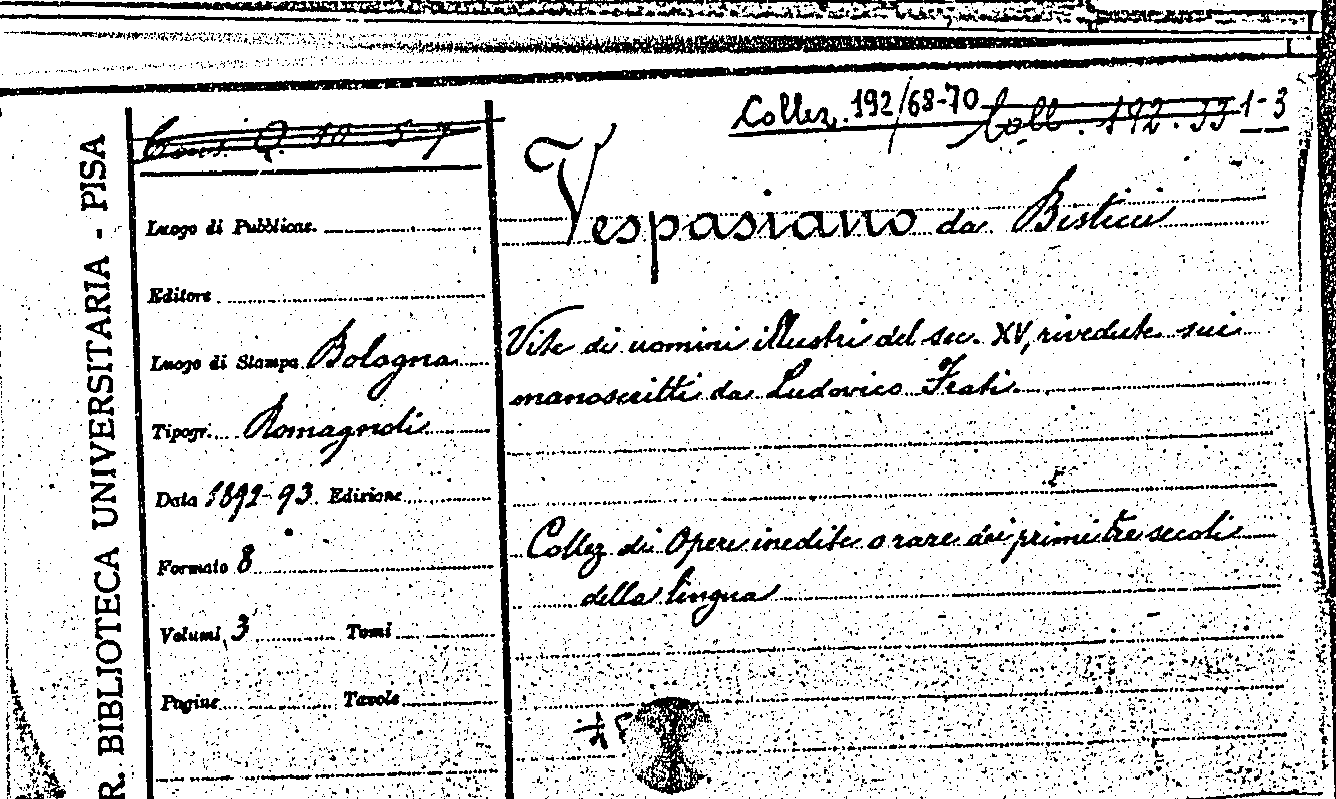 R. BIBLIOTECA UNIVERSITARIA - PISA
Collez. 192/68-70
Coll. 192.33 1-3
Cons. Q. 10 5-7
Vespasiano da Bisticci
Luogo di Pubblicaz.
Editore
Luogo di Stampa Bologna
Tipogr. Romagnoli
Data 1892-93 Edizione
Formato 8
Volumi 3 Tomi
Pagine Tavole
Vite di uomini illustri del sec. XV, rivedute sui
manoscritti da Ludovico Frati.
Collez di Opere inedite o rare dei primi tre secoli
della lingua